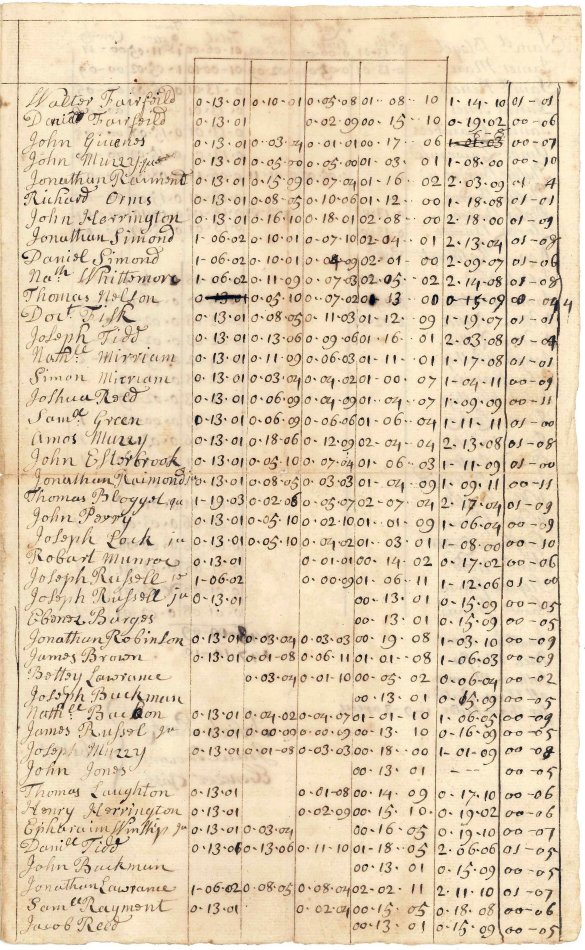 Walter Fairfeild 0·13·01 0·10·01 0·05·08 01·08·10 1·14·10 01-01
Daniel Fairfeild 0·13·01 0·02·09 00·15·10 0·19·02 00-06
John 0·13·01 0·03·04 0·01·01 00·17·06 1·01·03 00-07
John Murry 0·13·01 0·05·00 0·05·00 01·03·01 1·08·00 00-10
Jonathan Raimond 0·13·01 0·15·09 0·07·04 01·16·02 2·03·09 01 4
Richard Orms 0·13·01 0·08·05 0·10·06 01·12·00 1·18·08 01-01
John Herrington 0·13·01 0·16·10 0·18·01 02·08·00 2·18·00 01-09
Jonathan Simond 1·06·02 0·10·01 0·07·10 02·04·01 2·13·04
Daniel Simond 1·06·02 0·10·01 02·01·00 2·09·07 01-06
Nath Whittmore 1·06·02 0·11·09 0·07·03 02·05·02 2·14·08 01-08
Thomas Nelson 0·13·01 0·05·10 0·07·02 13·00 0·15·09 4
Doct Fisk 0·13·01 0·08·05 0·11·03 01·12·09 1·19·07 01-01
Joseph Tidd 0·13·01 0·13·06 0·09·06 01·16·01 2·03·08
Nathll Mirriam 0·13·01 0·11·09 0·06·03 01·11·01 1·17·08 01-01
Simon Mirriam 0·13·01 0·03·04 0·04·02 01·00·07 1·04·11 00-09
Joshua Reed 0·13·01 0·06·09 0·04·09 01·04·07 1·09·09 00-11
Samll Green 0·13·01 0·06·09 0·06·06 01·06·04 1·11·11 01-00
Amos Murry 0·13·01 0·18·06 0·12·09 02·04·04 2·13·08 01-08
John Esterbrook 0·13·01 0·05·10 0·07·04 01·06·03 1·11·09 01-00
Jonathan Raimond 0·13·01 0·08·05 0·03·03 01·04·09 1·09·11 00-11
Thomas Blogget ju 1·19·03 0·02·06 0·05·07 02·07·04 2·17·04 01-09
John Perry 0·13·01 0·05·10 0·02·10 01·01·09 1·06·04 00-09
Joseph Lock ju 0·13·01 0·05·10 0·04·02 01·03·01 1·08·00 00-10
Robart Munroe 0·13·01 0·01·01 00·14·02 0·17·02 00-06
Joseph Russell 1·06·02 0·00·09 01·06·11 1·12·06 01-00
Joseph Russell ju 0·13·01 00·13·01 0·15·09 00-05
Ebenez Burges 00·13·01 0·15·09 00-05
Jonathan Robinson 0·13·01 0·03·04 0·03·03 00·19·08 1·03·10 00-09
James Brown 0·13·01 0·01·08 0·06·11 01·01·08 1·06·03 00-09
Bettey Lawrance 0·03·04 0·01·10 00·05·02 0·06·04 00-02
Joseph Buckman 00·13·01 0·15·09 00-05
Nathll Bacon 0·13·01 0·04·02 0·04·07 01·01·10 1·06·05 00-09
James Russel Ju 0·13·01 0·00·00 0·00·09 00·13·10 0·16·09 00-05
Joseph Murry 0·13·01 0·01·08 0·03·03 00·18·00 1·01·09
John Jones 00·13·01 --- 00-05
Thomas Laughton 0·13·01 0·01·08 00·14·09 0·17·10 00-06
Henry Herrington 0·13·01 0·02·09 00·15·10 0·19·02 00-06
Epharaim Winship ju 0·13·01 0·03·04 00·16·05 0·19·10 00-07
Danill Tidd 0·13·01 0·13·06 0·11·10 01·18·05 2·06·06 01-05
John Buckman 00·13·01 0·15·09 00-05
Jonathan Lawrance 1·06·02 0·08·05 0·08·04 02·02·11 2·11·10 01-07
Samll Rayment 0·13·01 0·02·04 00·15·05 0·18·08 00-06
Jacob Reed 00·13·01 0·15·09 00-05